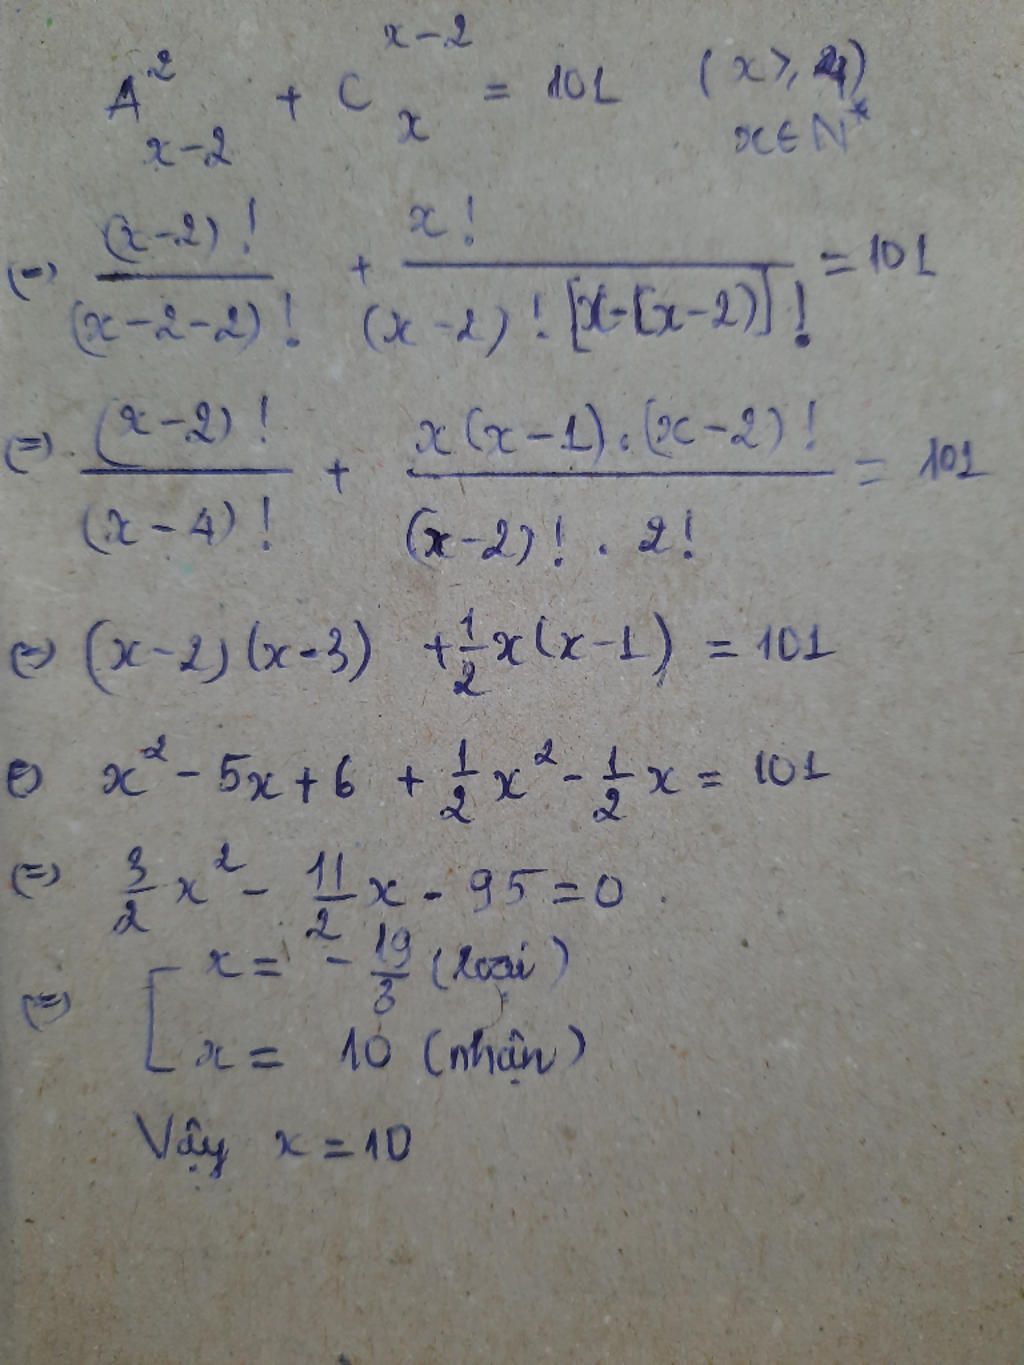 A²ₓ₋₂ + Cₓˣ⁻² = 101 (x ≥ 4)
x ∈ N*
(=) (x-2)! / (x-2-2)! + x! / (x-2)! [x-(x-2)]! = 101
(=) (x-2)! / (x-4)! + x(x-1).(x-2)! / (x-2)! . 2! = 101
(=) (x-2)(x-3) + 1/2 x(x-1) = 101
(=) x² - 5x + 6 + 1/2 x² - 1/2 x = 101
(=) 3/2 x² - 11/2 x - 95 = 0.
(=) [ x = - 19/3 (loại)
x = 10 (nhận)
Vậy x = 10